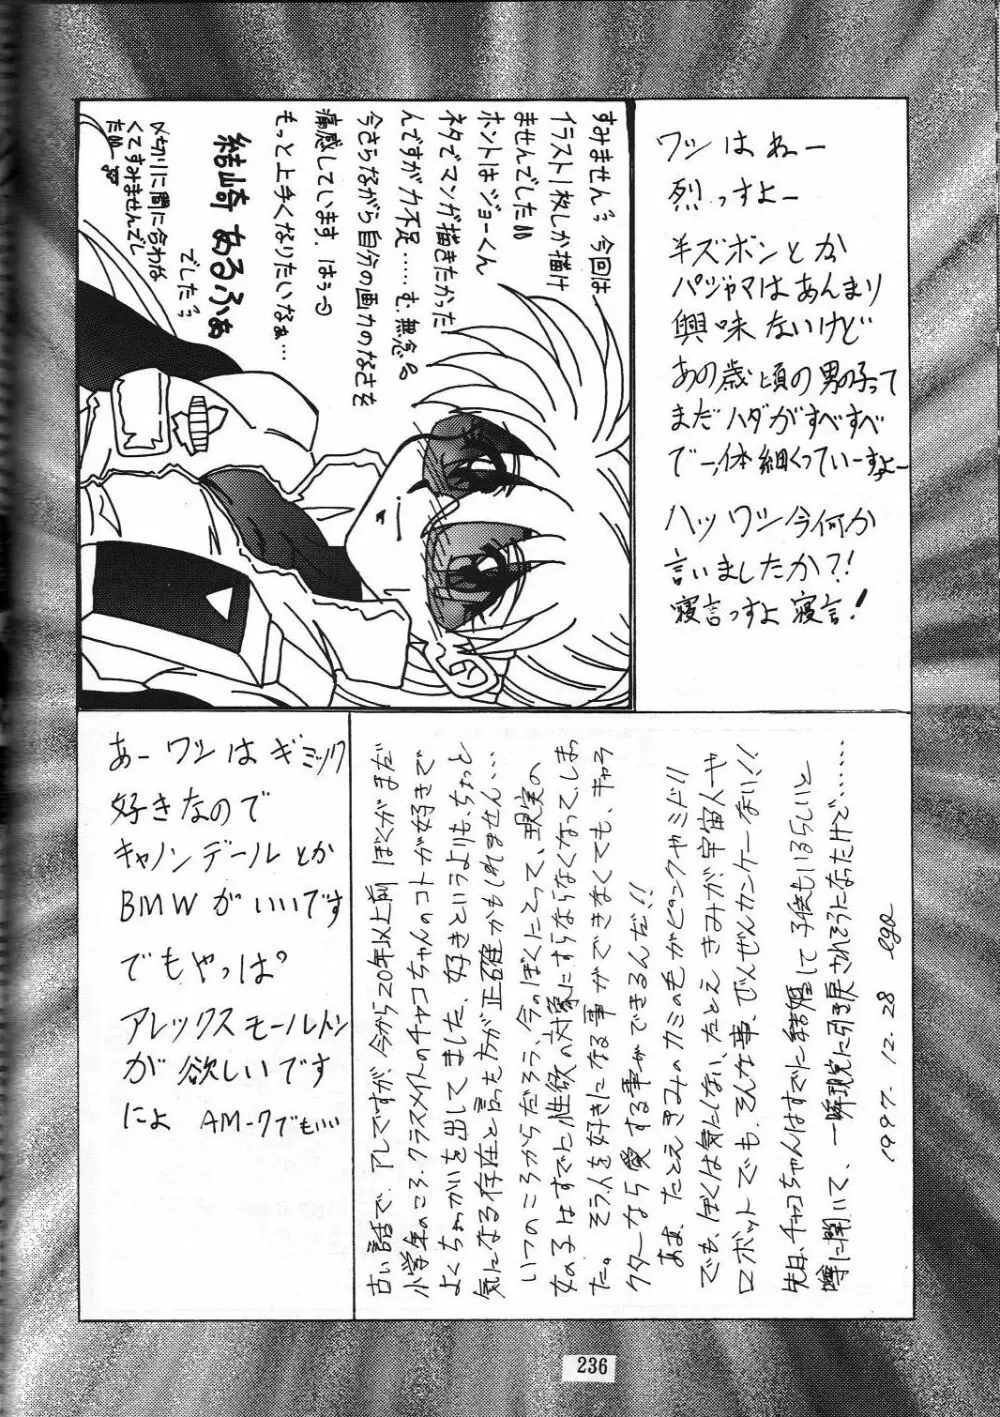 ワシはねー
烈っすよー
半ズボンとか
パジャマはあんまり
興味ないけど
あの歳頃の男の子って
まだハダがすべすべ
でー体細くっていーすよー
ハッワシ今何か
言いましたか?!
寝言っすよ寝言!
すみません 今回は
イラスト1枚しか描け
ませんでした
ホントはジョーくん
ネタでマンガ描きたかった
んですが力不足……む、無念。
今さらながら自分の画力のなさを
痛感しています。はう
もっと上手くなりたいなぁ…
結崎あるふぁ
でした
〆切りに間に合わな
くてすみませんでし
たー
あーワシはギミック
好きなので
キャノンデールとか
BMWがいいです
でもやっぱ
アレックスモールトン
が欲しいです
によ AM-7でもいい
古い話で、アレですが、今から20年以上前 ぼくがまだ
小学生のころ、クラスメイトのチャコちゃんのコトが好きで
よくちょっかいを出してました、好きというよりも、ちょっと
気になる存在と言った方が正確かもしれません…
いつのころからだろう、今のぼくにとって、現実の
女の子はすでに性欲の対象にすらならなくなってしまっ
た。そう人を好きになる事ができなくても、キャラ
クターなら愛する事ができるんだ!!
ああ、たとえきみのカミの毛がピンクやミドリ
でも、ぼくは気にしない、たとえきみが宇宙人や
ロボットでも、そんな事、ぜんぜんカンケーない!!
先日、チャコちゃんはすでに結婚して子供もいるらしいと
噂に聞いて、一瞬現実に引き戻されそうになったけど……
1997.12.28 ega
236